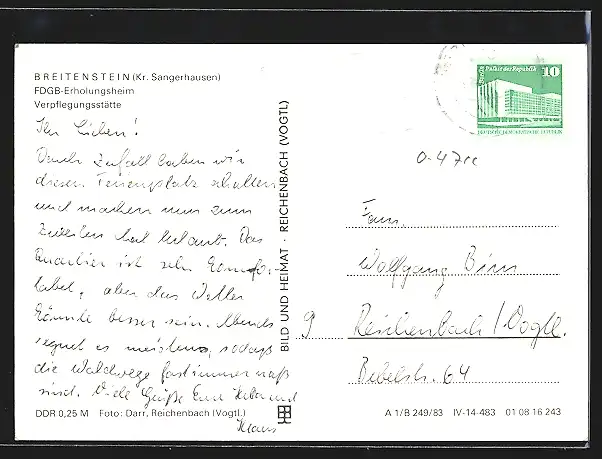 BREITENSTEIN (Kr. Sangerhausen)
FDGB-Erholungsheim
Verpflegungsstätte
Ihr Lieben!
Durch Zufall haben wir
diesen Ferienplatz erhalten
und machen nun zum
zweiten Mal Urlaub. Das
Quartier ist sehr komfor-
tabel, aber das Wetter
könnte besser sein. Abends
regnet es meistens, sodaß
die Waldwege fast immer naß
sind. Viele Grüße Eure und
Klaus
DDR 0,25 M Foto: Darr, Reichenbach (Vogtl.)
BILD UND HEIMAT · REICHENBACH (VOGTL)
Palast der Republik 10
DEUTSCHE DEMOKRATISCHE REPUBLIK
0-47rc
Fam.
Wolfgang
9 Reichenbach/Vogtl.
Bebelstr. 64
A 1/B 249/83 IV-14-483 01 08 16 243